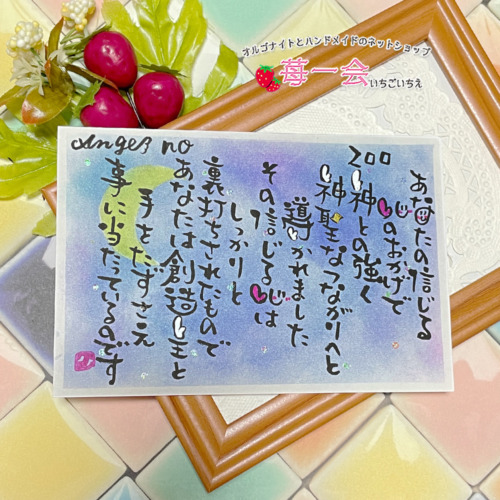 オルゴナイトとハンドメイドのネットショップ
苺一会
いちごいちえ
Angel no
200
あなたの信じる
心のおかげで
神との強く
神聖なつながりへと
導かれました
その信じる心は
しっかりと
裏打ちされたもので
あなたは創造主と
手をたずさえ
事に当たっているのです